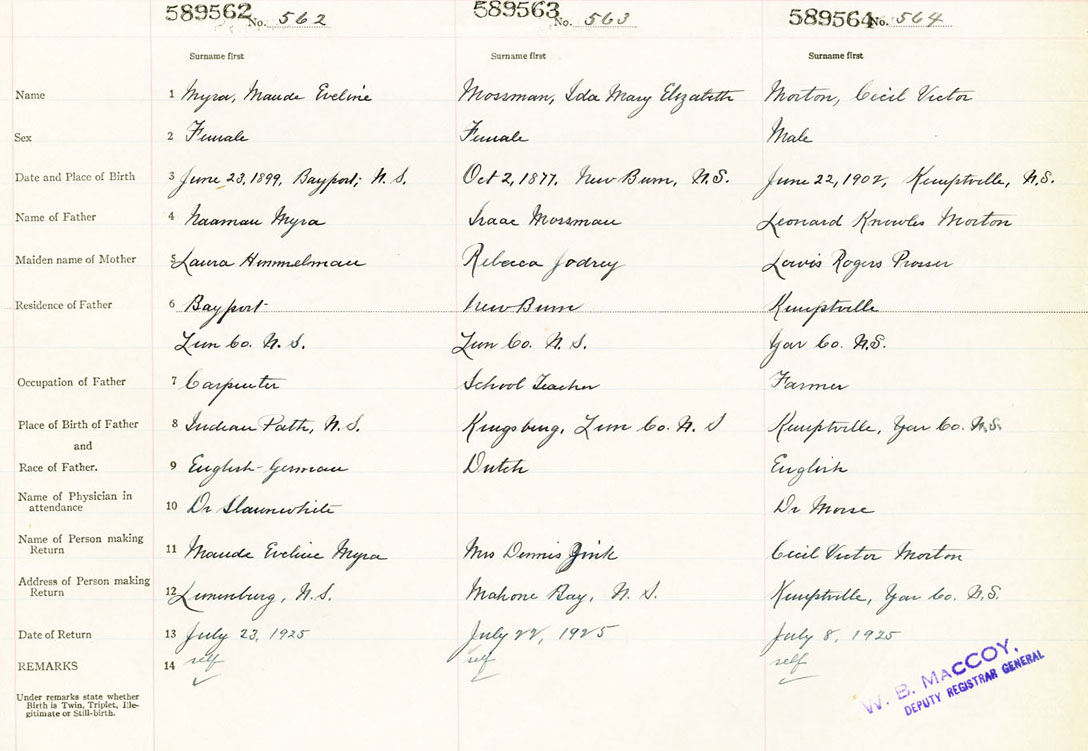 589562 No. 562 589563 No. 563 589564 No. 564
Surname first Surname first Surname first
Name 1 Myra, Maude Eveline Mossman, Ida Mary Elizabeth Morton, Cecil Victor
Sex 2 Female Female Male
Date and Place of Birth 3 June 23, 1899, Bayport, N.S. Oct 2, 1877. New Burn, N.S. June 22, 1902, Kemptville, N.S.
Name of Father 4 Naaman Myra Isaac Mossman Leonard Knowles Morton
Maiden name of Mother 5 Laura Himmelman Rebecca Jodrey Rogers Prosser
Residence of Father 6 Bayport New Burn Kemptville
Lun Co. N.S. Lun Co. N.S. Yar Co. N.S.
Occupation of Father 7 Carpenter School Teacher Farmer
Place of Birth of Father 8 Indian Path, N.S. Kingsburg, Lun Co. N.S Kemptville, Yar Co. N.S.
and
Race of Father. 9 English-German Dutch English
Name of Physician in
attendance 10 Dr Slaunwhite Dr Morse
Name of Person making
Return 11 Maude Eveline Myra Mrs Dennis Zink Cecil Victor Morton
Address of Person making
Return 12 Lunenburg, N.S. Mahone Bay, N.S. Kemptville, Yar Co. N.S.
Date of Return 13 July 23, 1925 July 22, 1925 July 8, 1925
REMARKS 14 self self self
Under remarks state whether
Birth is Twin, Triplet, Ille-
gitimate or Still-birth.
W. B. MACCOY,
DEPUTY REGISTRAR GENERAL